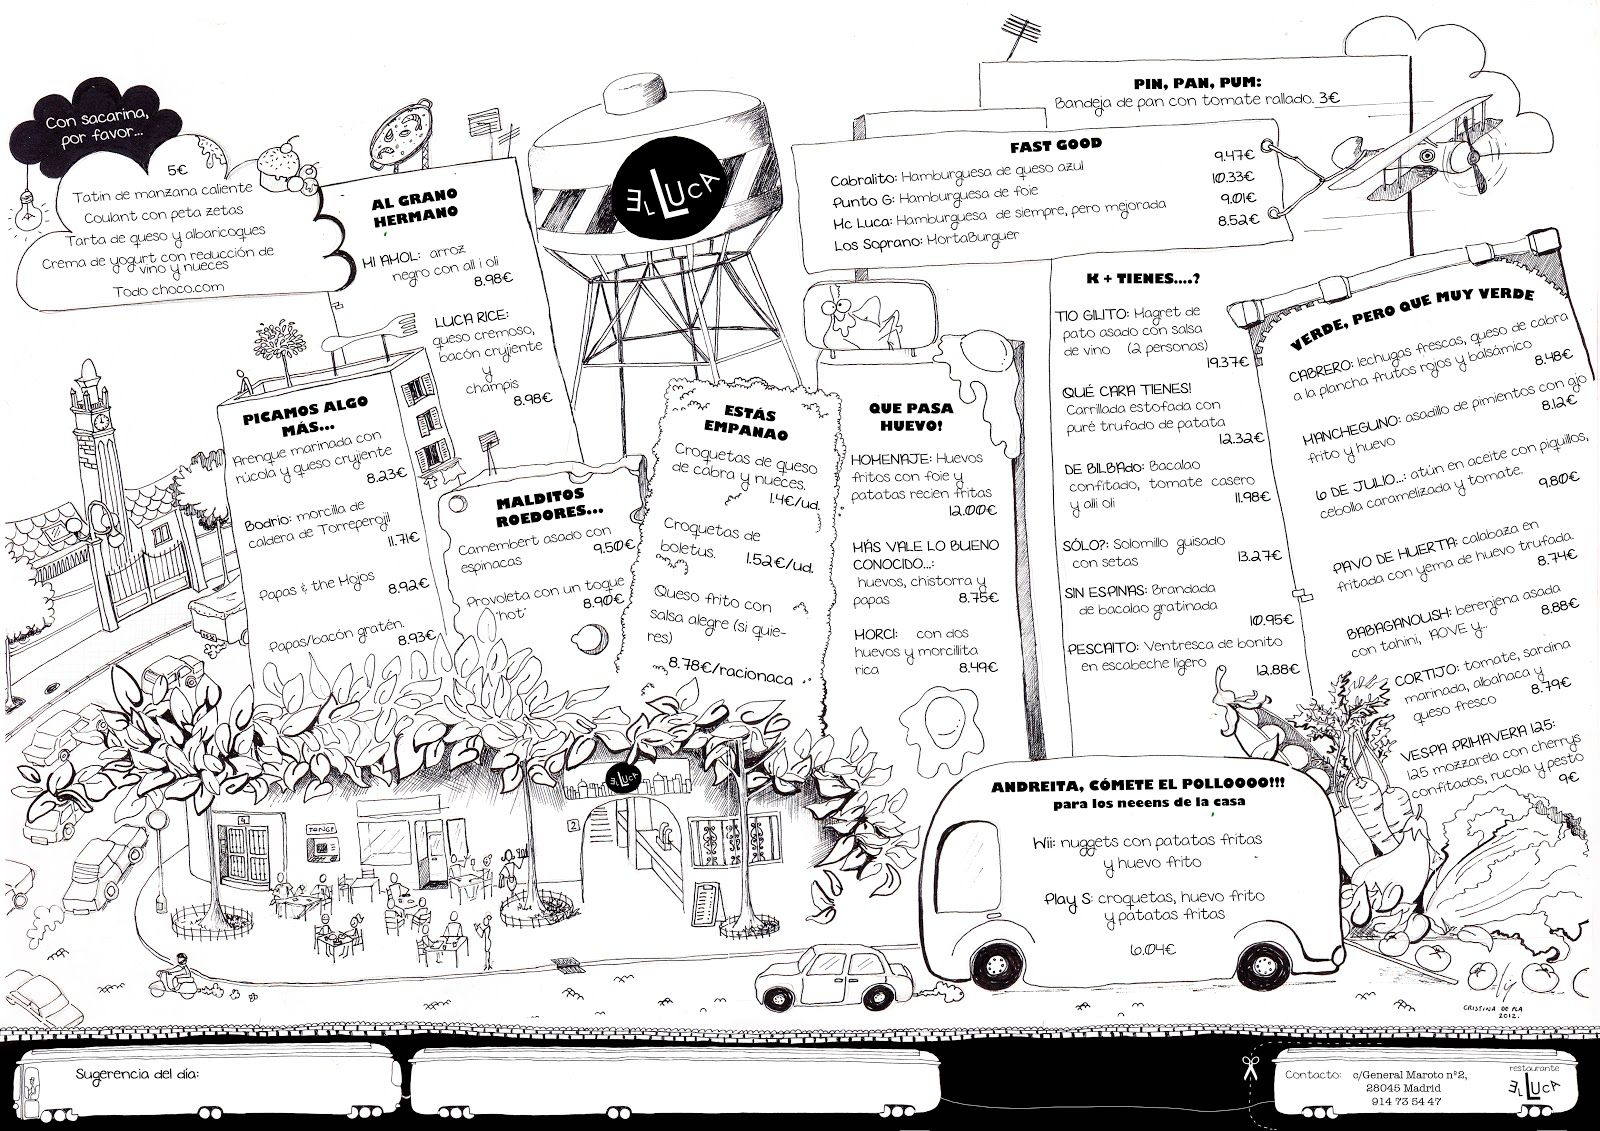 Con sacarina,
por favor...
5€
Tatin de manzana caliente
Coulant con peta zetas
Tarta de queso y albaricoques
Crema de yogurt con reducción de
vino y nueces
Todo choco.com
AL GRANO
HERMANO
MI AMOL: arroz
negro con all i oli
8.98€
LUCA RICE:
queso cremoso,
bacón crujiente
y
champis
8.98€
EL LUCA
PIN, PAN, PUM:
Bandeja de pan con tomate rallado. 3€
FAST GOOD
Cabralito: Hamburguesa de queso azul 9.47€
Punto G: Hamburguesa de foie 10.33€
Mc Luca: Hamburguesa de siempre, pero mejorada 9.01€
Los Soprano: MortaBurguer 8.52€
PICAMOS ALGO
MÁS...
Arenque marinada con
rúcola y queso crujiente
8.23€
Bodrio: morcilla de
caldera de Torreperogil
11.71€
Papas & the Mojos
8.92€
Papas/bacón gratén.
8.93€
MALDITOS
ROEDORES...
Camembert asado con
espinacas 9.50€
Provoleta con un toque
'hot' 8.90€
ESTÁS
EMPANAO
Croquetas de queso
de cabra y nueces.
1.4€/ud.
Croquetas de
boletus. 1.52€/ud.
Queso frito con
salsa alegre (si quie-
res)
8.78€/racionaca
QUE PASA
HUEVO!
HOMENAJE: Huevos
fritos con foie y
patatas recien fritas
12.00€
MÁS VALE LO BUENO
CONOCIDO...:
huevos, chistorra y
papas 8.75€
MORCI: con dos
huevos y morcillita
rica 8.49€
K + TIENES....?
TIO GILITO: Magret de
pato asado con salsa
de vino (2 personas)
19.37€
QUÉ CARA TIENES!
Carrillada estofada con
puré trufado de patata
12.32€
DE BILBAdo: Bacalao
confitado, tomate casero
y alli oli 11.98€
SÓLO?: Solomillo guisado
con setas 13.27€
SIN ESPINAS: Brandada
de bacalao gratinada
10.95€
PESCAITO: Ventresca de bonito
en escabeche ligero
12.88€
VERDE, PERO QUE MUY VERDE
CABRERO: lechugas frescas, queso de cabra
a la plancha frutos rojos y balsámico
8.48€
MANCHEGUNO: asadillo de pimientos con ajo
frito y huevo 8.12€
6 DE JULIO...: atún en aceite con piquillos,
cebolla caramelizada y tomate. 9.80€
PAVO DE HUERTA: calabaza en
fritada con yema de huevo trufada.
8.74€
BABAGANOUSH: berenjena asada
con tahini, AOVE y... 8.88€
CORTIJO: tomate, sardina
marinada, albahaca y
queso fresco 8.79€
VESPA PRIMAVERA 125:
125 mozzarela con cherrys
confitados, rucola y pesto
9€
ANDREITA, CÓMETE EL POLLOOOO!!!
para los neeens de la casa
Wii: nuggets con patatas fritas
y huevo frito
Play S: croquetas, huevo frito
y patatas fritas
6.04€
EL LUCA
4
2
CRISTINA DE PLA
2012.
Sugerencia del día:
Contacto: c/General Maroto nº2,
28045 Madrid
914 73 54 47
restaurante
EL LUCA